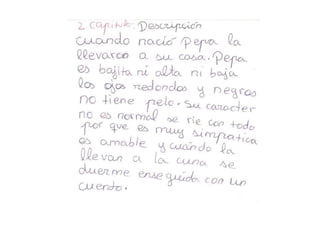 2 capitulo. Descripción
cuando nació Pepa la
llevaron a su casa. Pepa
es bajita ni alta ni baja
los ojos redondos y negros
no tiene pelo. Su caracter
no es normal se rie con todo
por que es muy simpatica
es amable y cuándo la
llevan a la cuna se
duerme enseguida con un
cuento.